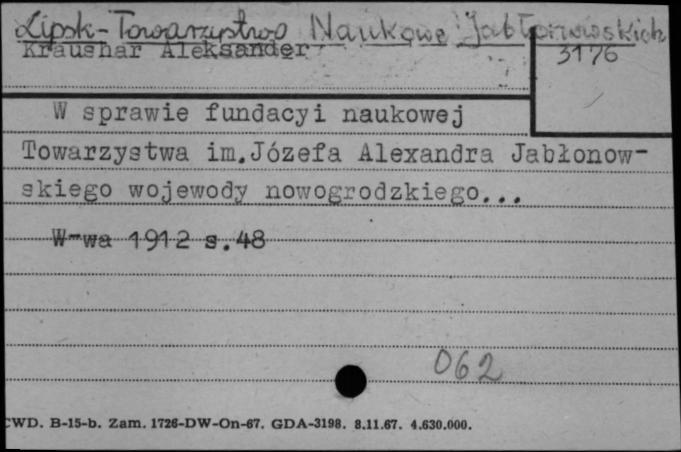 Lipsk-Towarzystwo Naukowe Jabłonowskich
Kraushar Aleksander
3176
W sprawie fundacyi naukowej
Towarzystwa im.Józefa Alexandra Jabłonow-
skiego wojewody nowogrodzkiego...
W-wa 1912 s.48
062
CWD. B-15-b. Zam. 1726-DW-On-67. GDA-3198. 8.11.67. 4.630.000.